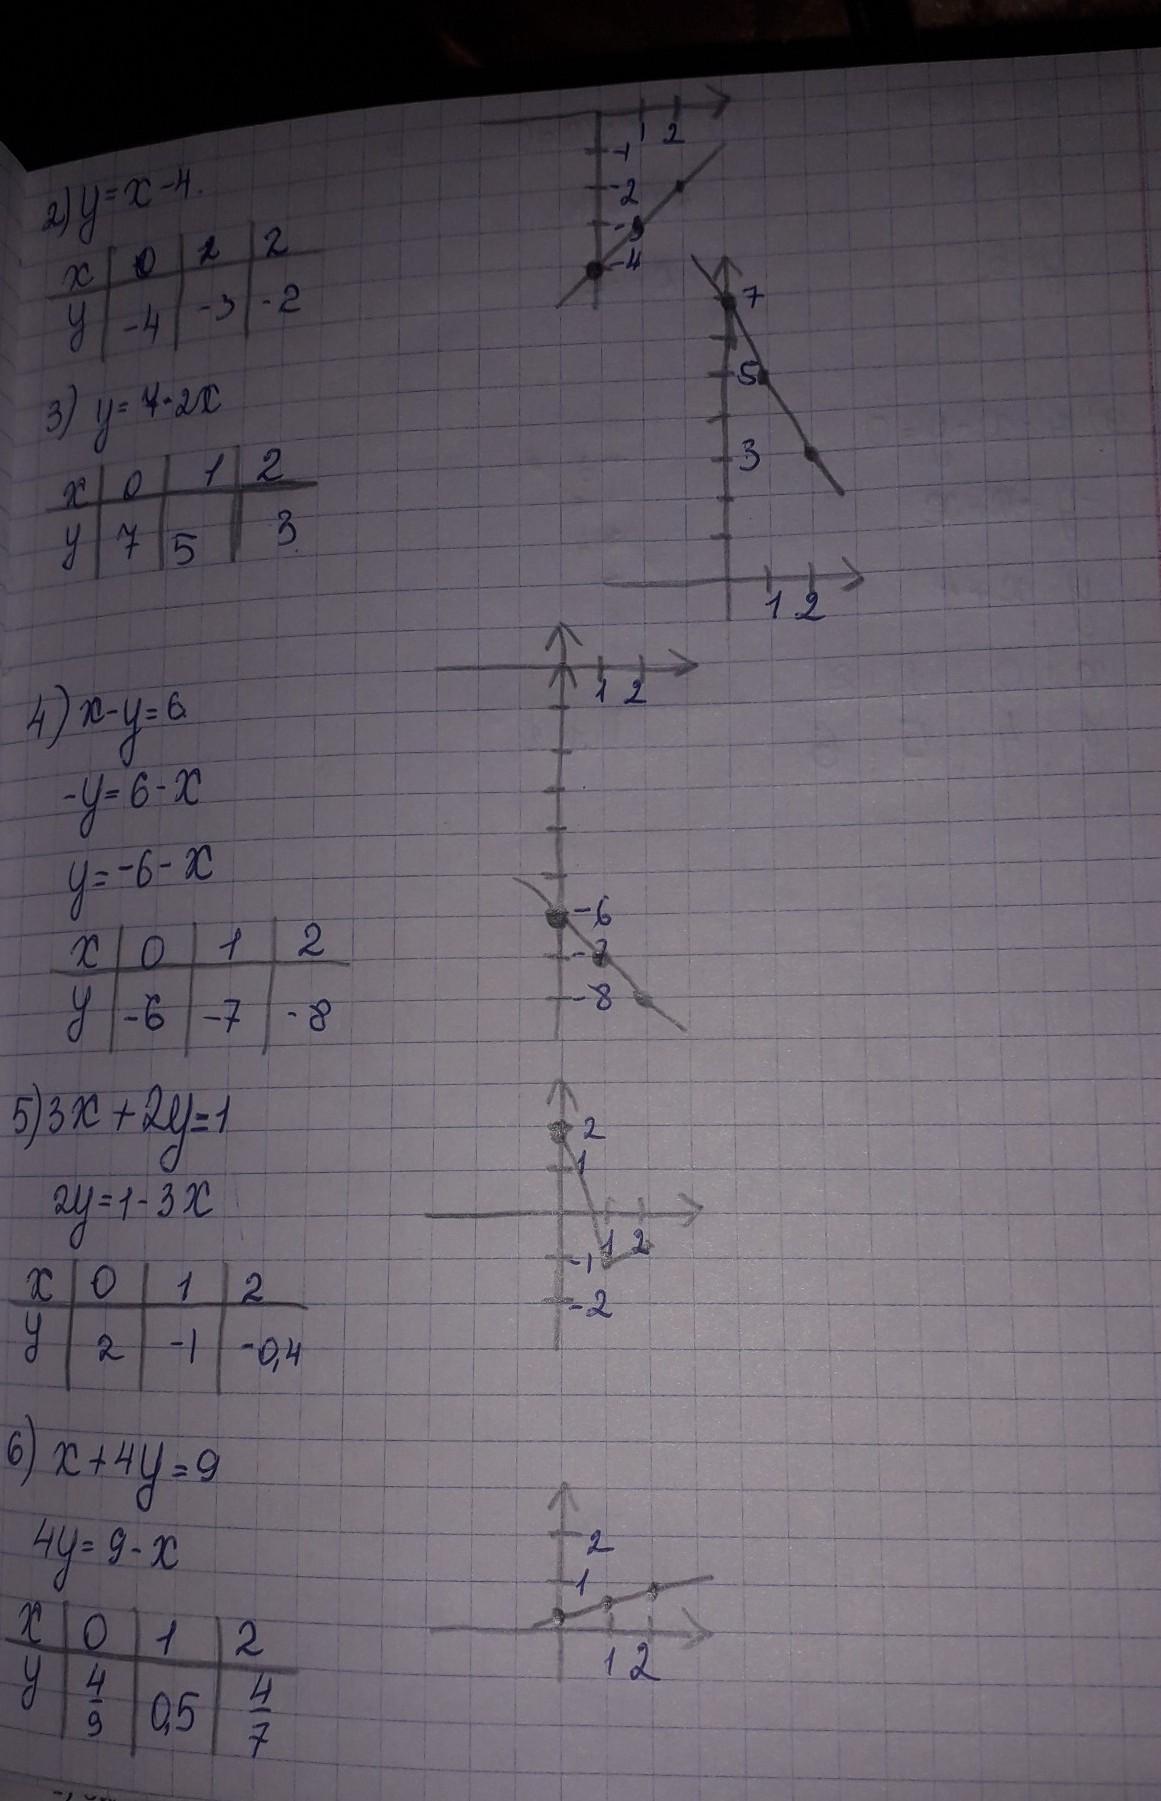 2) y = x - 4.
x 0 1 2
y -4 -3 -2
1 2
-1
-2
-3
-4
3) y = 7 - 2x
x 0 1 2
y 7 5 3
7
5
3
1 2
4) x - y = 6
-y = 6 - x
y = -6 - x
x 0 1 2
y -6 -7 -8
1 2
-6
-7
-8
5) 3x + 2y = 1
2y = 1 - 3x
x 0 1 2
y 2 -1 -0,4
2
1
1 2
-1
-2
6) x + 4y = 9
4y = 9 - x
x 0 1 2
y 4/9 0,5 4/7
2
1
1 2